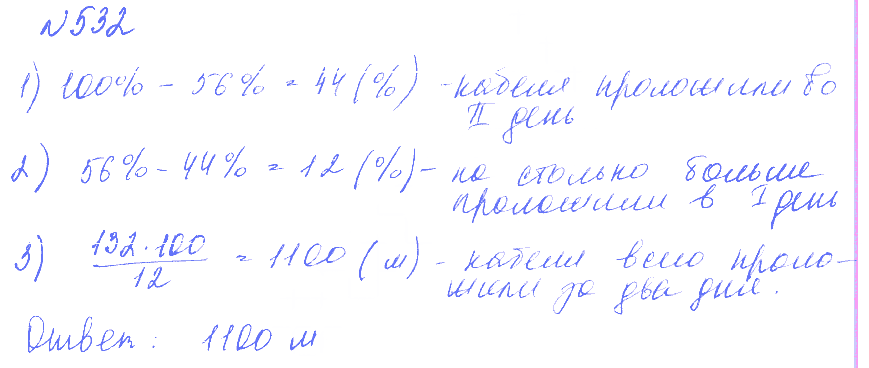 №532
1) 100% - 56% = 44 (%) - кабеля проложили во
II день
2) 56% - 44% = 12 (%) - на столько больше
проложили в I день
3) 132·100/12 = 1100 (м) - кабеля всего проло-
жили за два дня.
Ответ: 1100 м